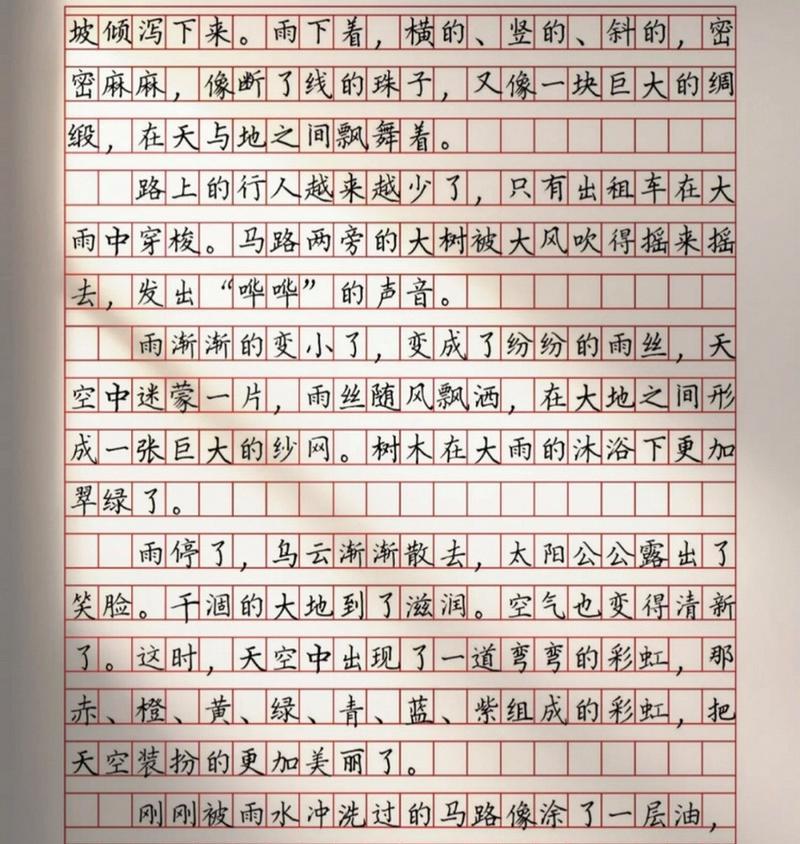 坡倾泻下来。雨下着，横的、竖的、斜的，密
密麻麻，像断了线的珠子，又像一块巨大的绸
缎，在天与地之间飘舞着。
路上的行人越来越少了，只有出租车在大
雨中穿梭。马路两旁的大树被大风吹得摇来摇
去，发出“哗哗”的声音。
雨渐渐的变小了，变成了纷纷的雨丝，天
空中迷蒙一片，雨丝随风飘洒，在大地之间形
成一张巨大的纱网。树木在大雨的沐浴下更加
翠绿了。
雨停了，乌云渐渐散去，太阳公公露出了
笑脸。干涸的大地到了滋润。空气也变得清新
了。这时，天空中出现了一道弯弯的彩虹，那
赤、橙、黄、绿、青、蓝、紫组成的彩虹，把
天空装扮的更加美丽了。
刚刚被雨水冲洗过的马路像涂了一层油，